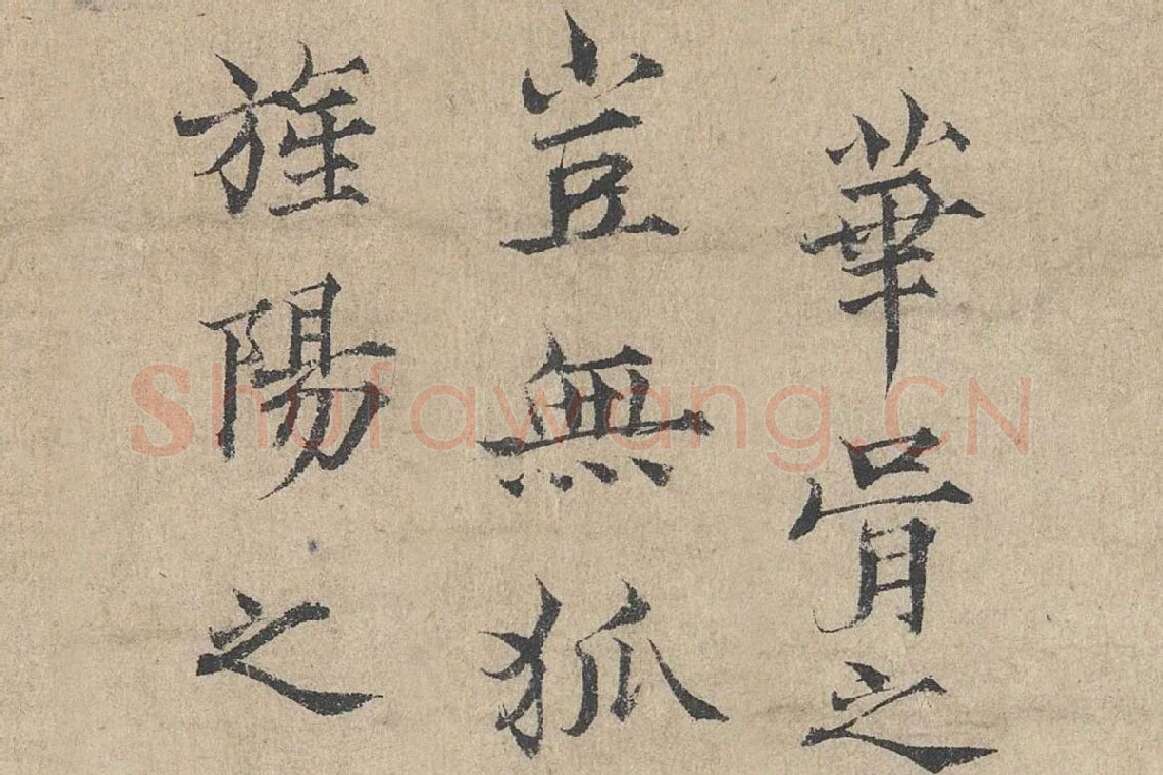 華胥之
豈無狐
旌陽之
Shufawang.CN